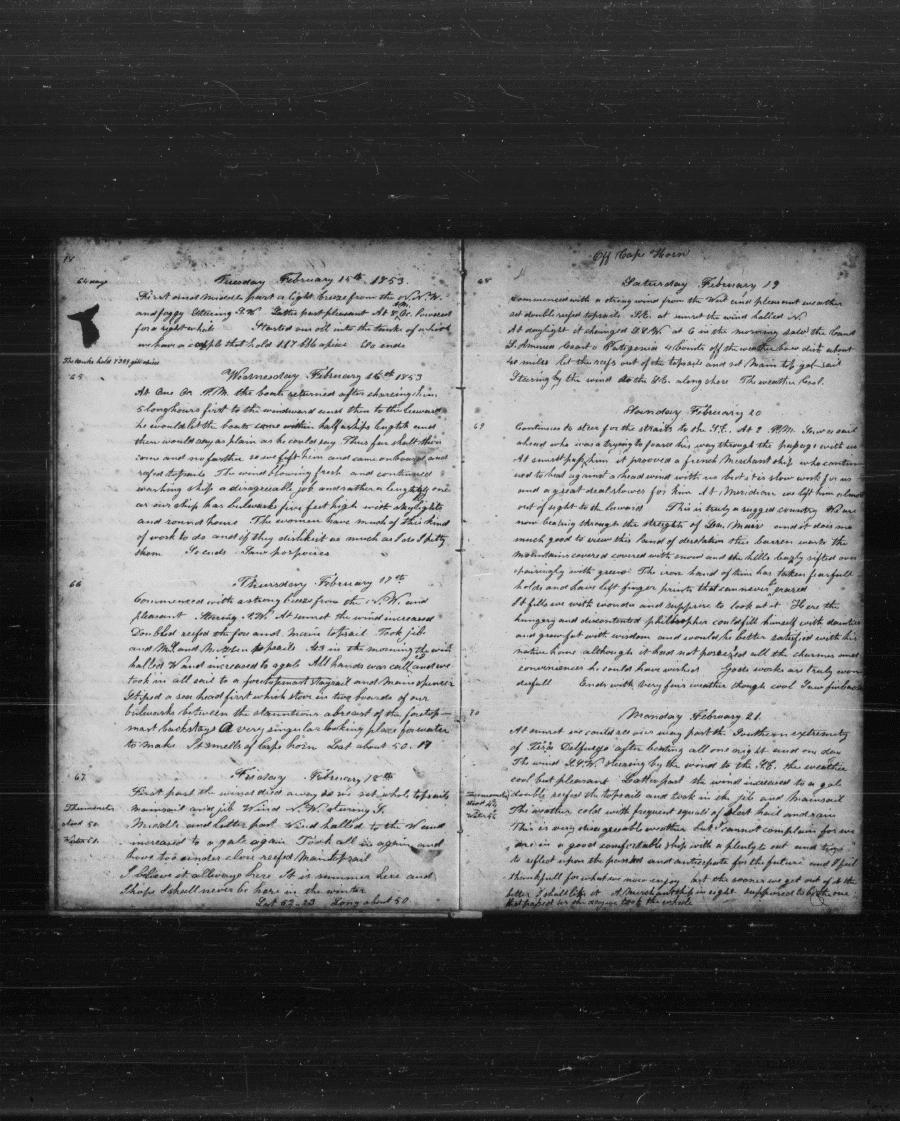 64 days
Tuesday February 15th 1853
First and Middle part a light breeze from the N.N.W.
and foggy Stering S.W. Latter part pleasant At 8 A.M. Lowered
for a right whale Started our oil into the tanks of which
we have a couple that hold 117 bbl apiece So ends
The tanks hold
65
Wednesday February 16th 1853
At One Oc. P.M. the boats returned after chaseing him
5 long hours first to the windward and then to the leeward
he would let the boats come within half a ships length and
then would say as plain as he could say Thus far shalt thou
com and no further so we left him and came on board and
reefed topsails The wind blowing fresh and continued
washing ship a disagreeable job and rather a lenghty one
as our ship has bulwarks five feet high with skylights
and round houses The women have much of this kind
of work to do and if they dislike it as much as I do I pity
them So ends Saw porpoises
66
Thursday February 17th
Commenced with a strong breeze from the N.W. and
pleasant Stering S.W. At sunset the wind increased
Doubled reefed the fore and Main topsail Took jib
and M.S. and M. topsails At in the morning the wind
halled W and increased to a gale All hands was called and we
took in all sail to a foretopmast staysail and Main spencer
Shiped a sea head first which stove in two boards of our
bulwarks between the stauntions abreast of the foretop-
mast backstays A very singular looking place for water
to make It smells of Cape horn Lat about 50. 17
67
Friday February 18th
First part the wind died away so we set whole topsails
mainsail and jib Wind N.W. stering S.
Thermometer
stood 50
Water 50
Middle and latter part Wind halled to the W and
increased to a gale again Took all in again and
hove too under close reefed Main topsail
I beleve it allways here It is summer here and
I hope I shall never be here in the winter
Lat 52-23 Long about 50
Off Cape Horn
68
Saturday February 19
Commenced with a string wind from the West and pleasant weather
set double reefed topsails S.E. at sunset the wind halled N
At daylight it changed W at 6 in the morning saw the land
S. America Coast of Patagonia 4 points off the weather bow dist about
40 miles let the reefs out of the topsails and set Main top gal-sail
Steering by the wind to the S.E. along shore The weather Cool.
69
Sunday February 20
Continues to steer for the straits to the S.E. At 2 P.M. Saw a sail
ahead who was a trying to force his way through the passage with us
At sunset pass him it prooved a french Merchant ship who contin
ued to beat against a head wind with us but it is slow work for us
and a great deal slower for him At Meridian we left him almost
out of sight to the leward This is truly a rugged country We are
now beating through the streights of La. Mair and it does me
much good to view this land of desolation this barren waste the
Mountains covered covered with snow and the hills sifted over
spairingly with green The iron hand of time has taken fearfull
holds and have left finger prints that can never be erazed
It fills me with wonder and supprise to look at it Here the
hungery and discontented philosipher could fill himself with dainties
and grow fat with wisdom and would be better satisfied with his
native home although it had not possessed all the charmes and
conveniences he could have wished Gods works are truly won
derfull Ends with very fair weather though cool Saw finbacks
70
Monday February 21
At sunset we could see our way past the Southern extremity
of Tera Delfuego after beating all one night and one day
The wind S.S.W. stearing by the wind to the S.E. the weather
cool but pleasant Latter part the wind increased to a gale
Thermometer
stood
Water
double reefed the topsails and took in the jib and Mainsail
The weather cold with frequent squals of sleet hail and rain
This is very disagreeable weather but I cannot complain for we
are in a good comfortable ship with a plenty to eat and time
to reflect upon the passed and anticipate for the future and I feel
thankfull for what we now enjoy but the sooner we get out of it the
better I shall like it A Merchant ship in sight supposed to be the one
that passed us the day we took the whale